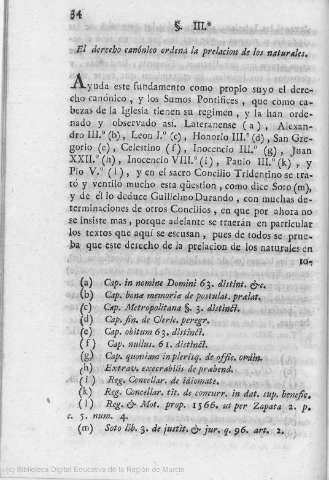 34
§. III.º
El derecho canónico ordena la prelacion de los naturales.
Ayuda este fundamento como proplo suyo el dere-
cho canónico, y los Sumos Pontifices, que como ca-
bezas de la Iglesia tienen su regimen, y la han orde-
nado y observado asi. Lateranense (a), Alexan-
dro III.º (b), Leon I.º (c), Honorio III.º (d), San Gre-
gorio (e), Celestino (f), Inocencio III.º (g), Juan
XXII.º (a), Inocencio VIII.º (i), Paulo III.º (k), y
Pio V.º (l), y en el sacro Concilio Tridentino se tra-
tó y ventilo mucho esta qüestion, como dice Soto (m),
y de él lo deduce Guillelmo Durando, con muchas de-
terminaciones de otros Concilios, en que por ahora no
se insiste mas, porque adelante se traerán en particular
los textos que aquí se escusan, pues de todos se prue-
ba que este derecho de la prelacion de los naturales en
to-
(a) Cap. in nomine Domini 63. distint. &c.
(b) Cap. bonæ memoriæ de postulat. prælat.
(c) Cap. Metropolitana §. 3. distinct.
(d) Cap. fin. de Cleric. peregr.
(e) Cap. obitum 63. distinct.
(f) Cap. nullus. 61. distinct.
(g) Cap. quoniam in plerisq. de offic. ordin.
(h) Extrav. execrabilis de præbend.
(i) Reg. Concellar. de idiomate.
(k) Reg. Concellar. tit. de concurr. in dat. sup. benefic.
(l) Reg. & Mot. prop. 1566. ut per Zapata 2. p.
c. 5. num. 4.
(m) Soto lib. 3. de justit. & jur. q. 96. art. 2.
(c) Biblioteca Digital Educativa de la Región de Murcia